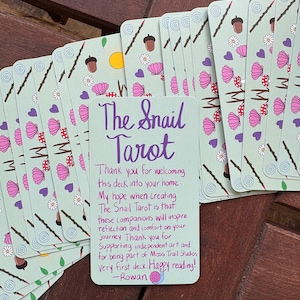 The Snail
Tarot
Thank you for welcoming
this deck into your home
My hope when creating
The Snail Tarot is that
these companions will inspire
reflection and comfort on your
journey. Thank you for
supporting independent art and
for being part of Moss Trail Studios
very first deck. Happy reading!
-Rowan